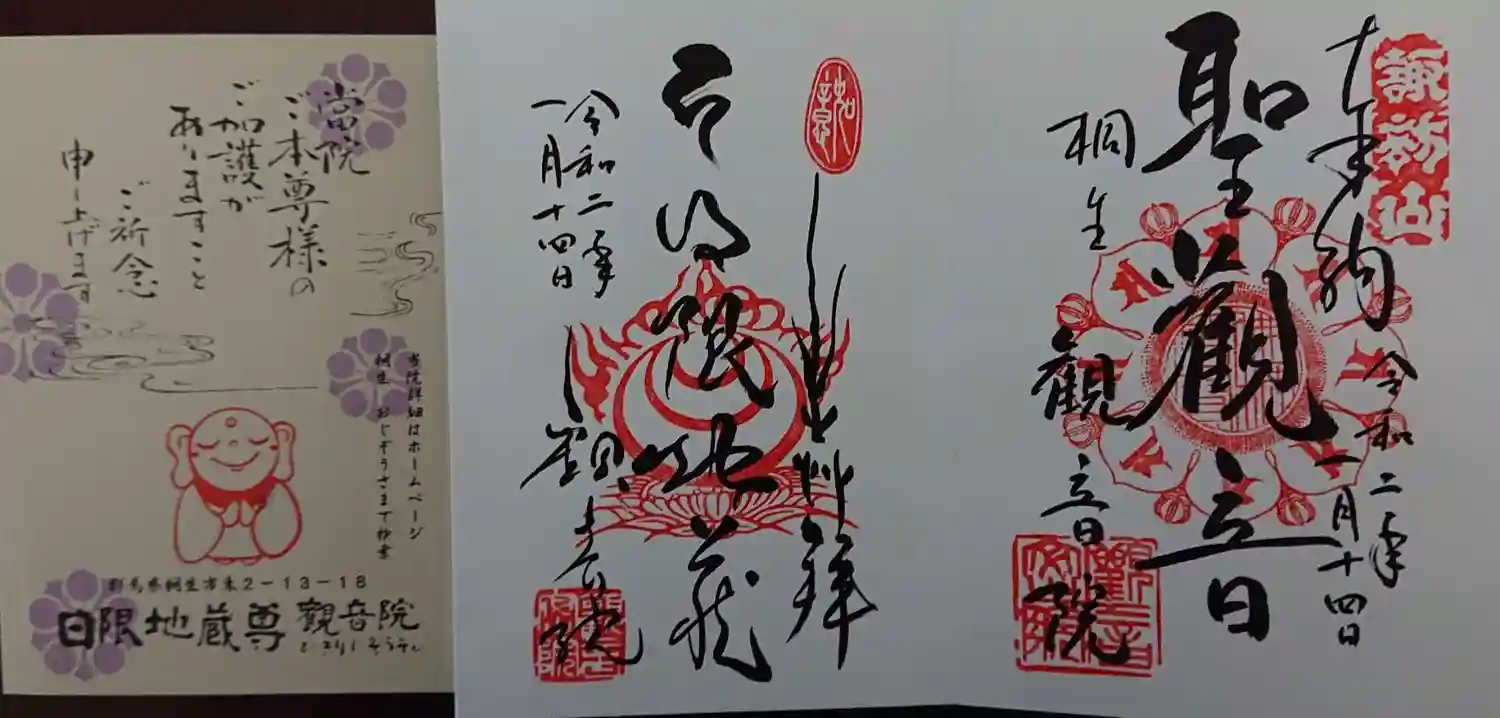 當院
ご本尊様の
ご加護が
ありますこと
ご祈念
申し上げます
当院詳細はホームページ
桐生 おじぞうさまで検索
群馬県桐生市東2-13-18
日限地蔵尊 観音院
奉拝
日限地蔵
令和二年
一月十四日
観音院
諏訪山
令和二年
一月十四日
聖観音
桐生
観音院